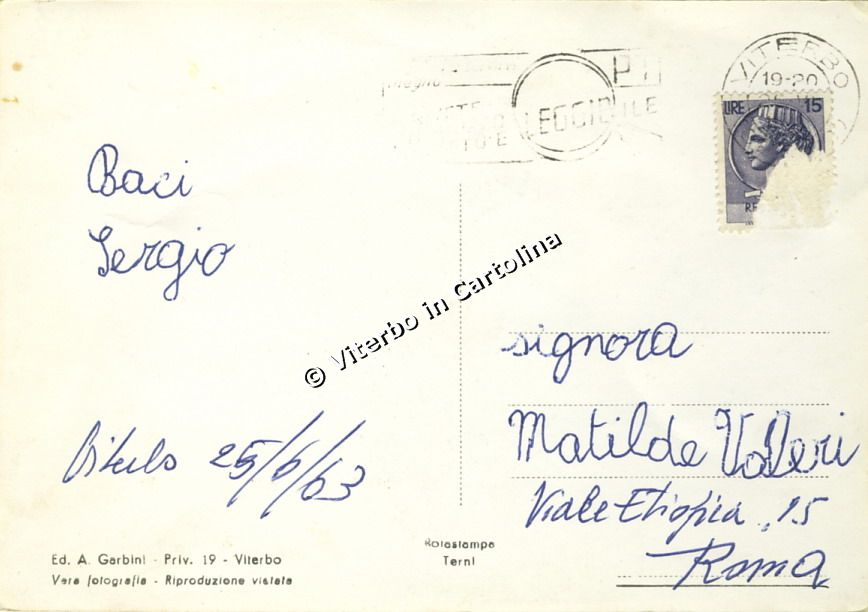 VITERBO
19-20
LEGGIBILE
LIRE 15
Baci
Sergio
© Viterbo in Cartolina
signora
Matilde Valleri
Viale Etiopia, 15
Roma
Viterbo 25/6/63
Rotostampa
Terni
Ed. A. Garbini - Priv. 19 - Viterbo
Vera fotografia - Riproduzione vietata